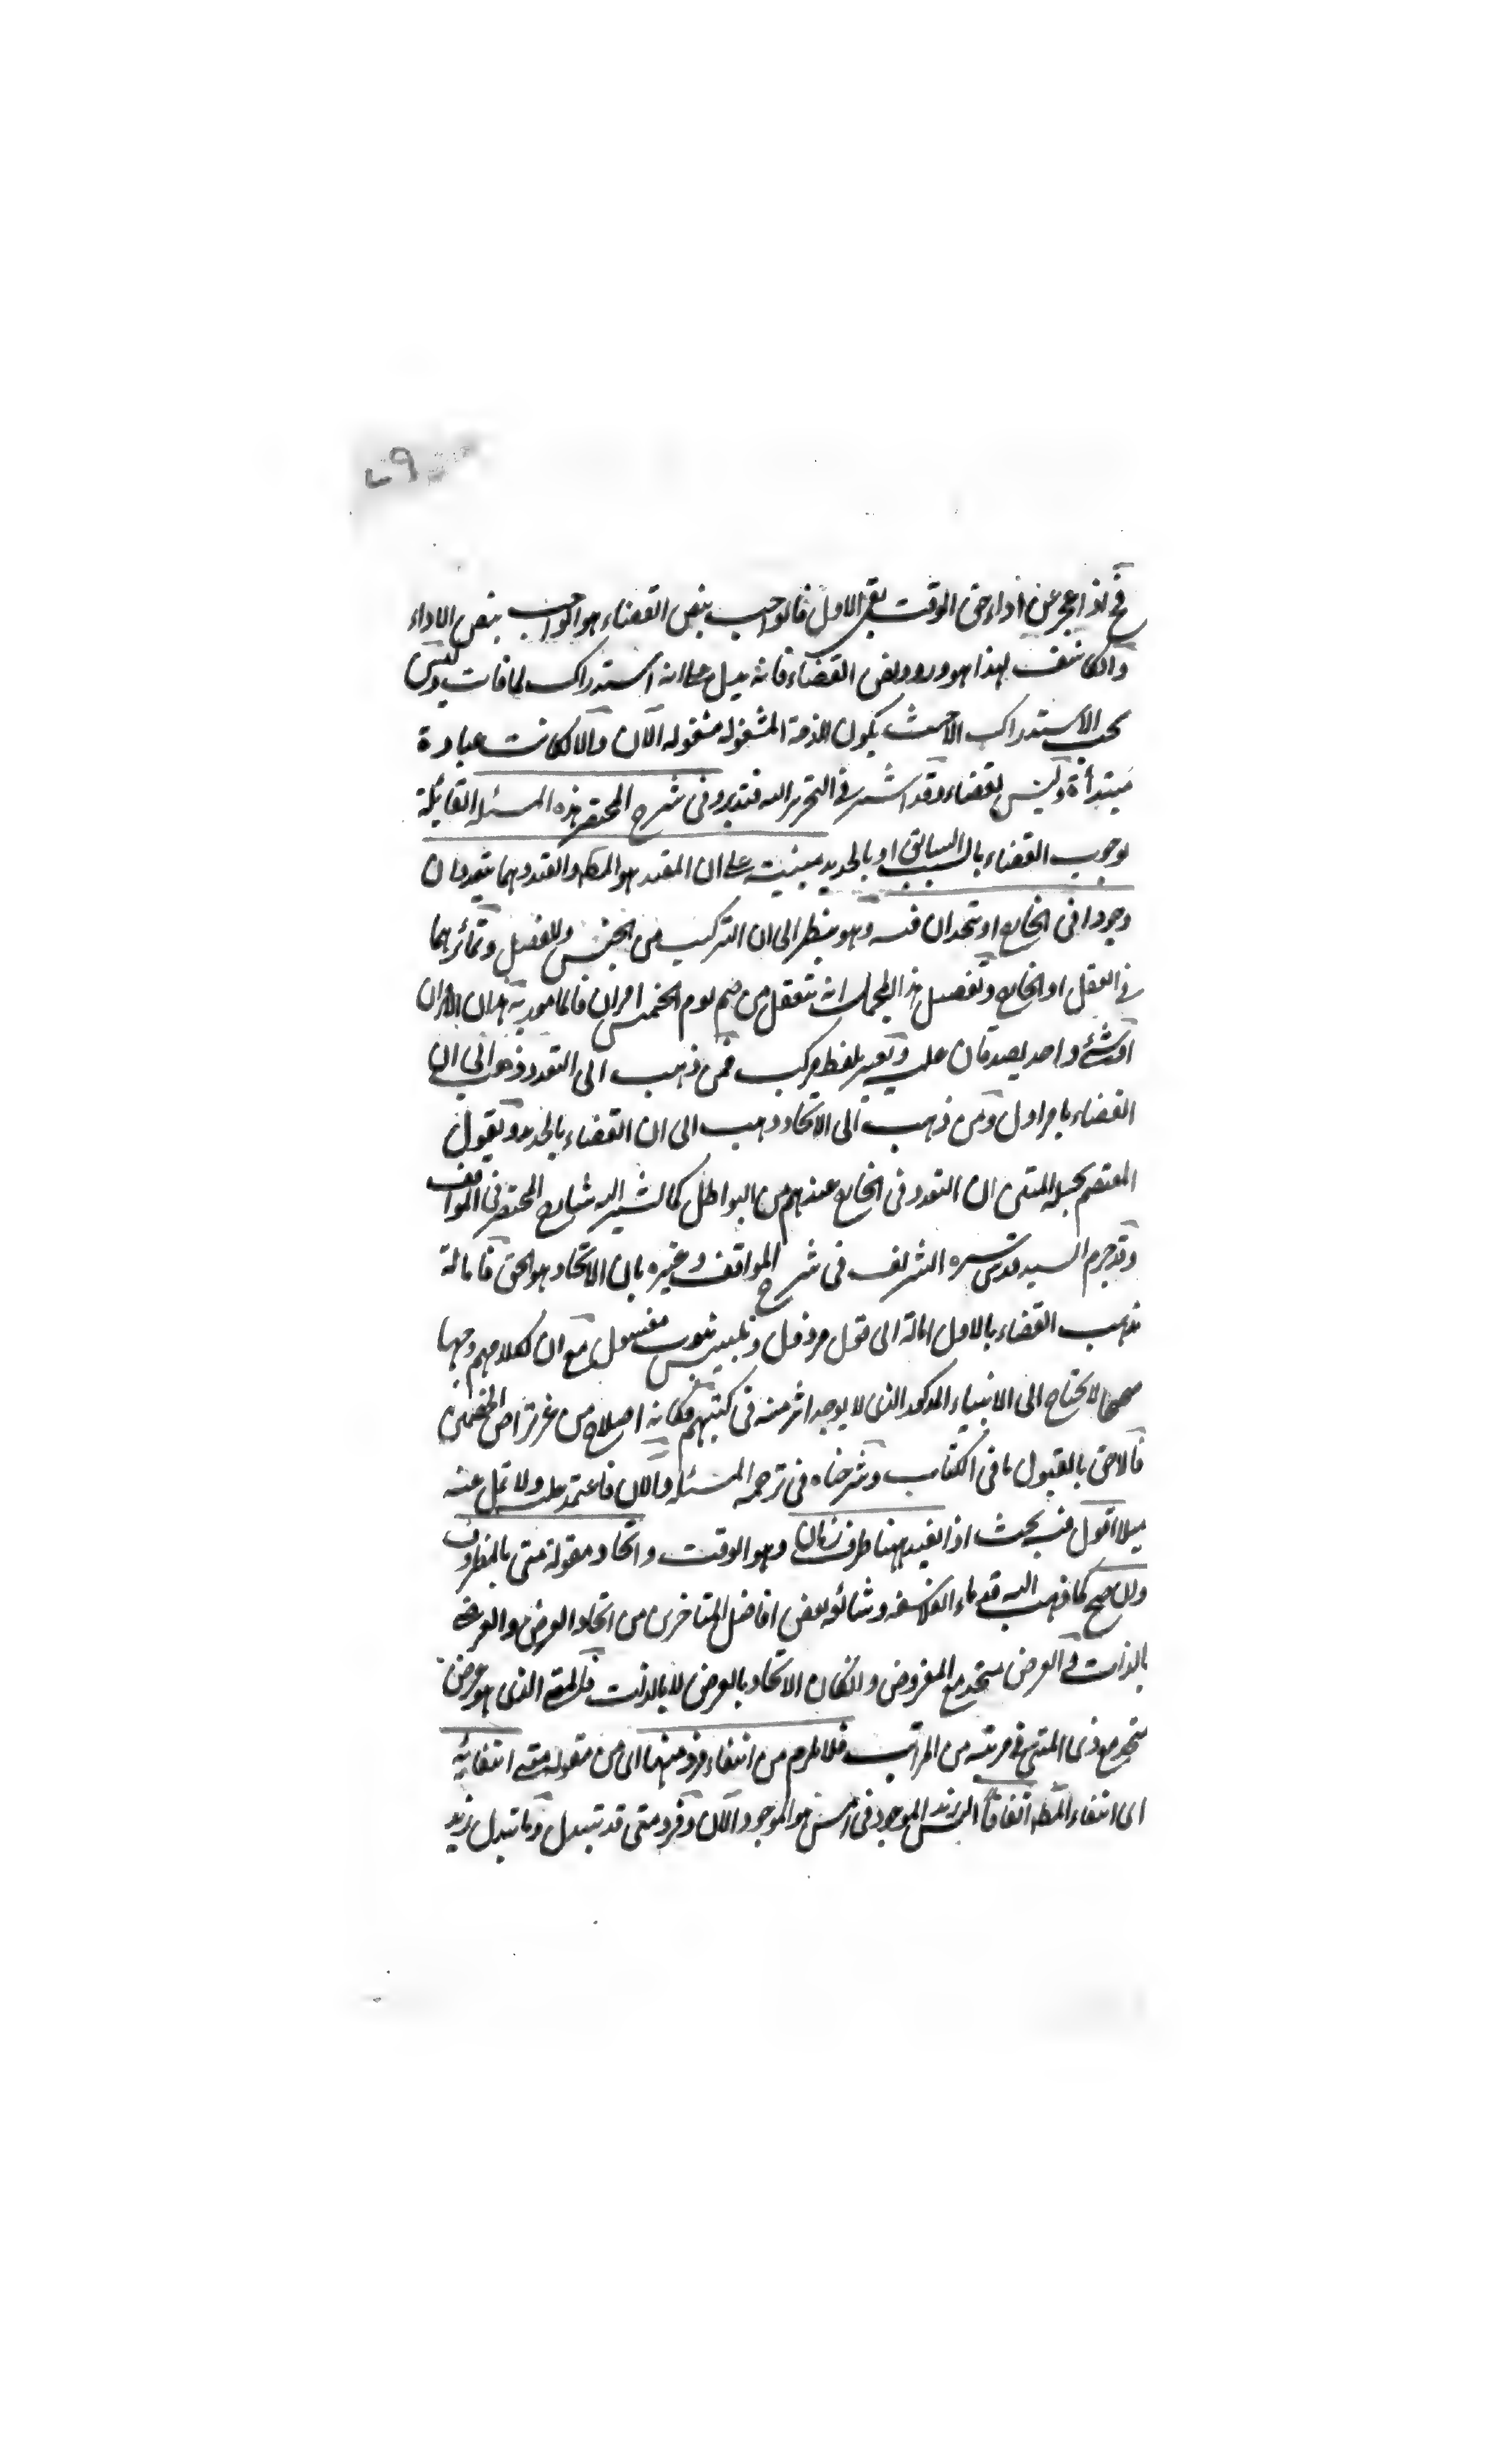 فح اذا عجز عن أداء حق الوقت بقى الاول فالواجب بنص القضاء هو الواجب بنص الاداء
والكاشف لهذا هو ورود نص القضاء فانه يدل على انه استدراك لما فات وليس
يجب الاستدراك الا حيث يكون الذمة المشغوله مشغوله الآن والا لكانت عبادة
مبتدأة وليس بقضاء وقد اشير في التحرير اليه فتدبر وفى شرح المختصر هذه المسئلة القائلة
بوجوب القضاء بالسبب السابق او بالجديد مبنيت على ان المقيد هو المط والقيد وهما يتعددان
وجودا فى الخارج او يتحدان فيه وهو ينظر الى ان التركيب من الجنس والفصل وتمائزهما
في العقل او الخارج وتفصيل هذا انه تتعقل من صم يوم الخميس امران فالمامور به هذان الامران
او شئ واحد يصدقان عليه ويعبر بلفظ مركب فمن ذهب الى التعدد ذهب الى ان
القضاء بامر اول ومن ذهب الى الاتحاد ذهب الى ان القضاء بالجديد ويقول
المعتصم بحبله المتين ان التعدد فى الخارج عندهم من البواطل كما يشير اليه شارح المختصر فى المواقف
وقد جزم السيد قدس سره الشريف فى شرح المواقف وغيره بان الاتحاد هو الحق فامالة
مذهب القضاء بالاول امالة الى قول مرذول وتلبيس بثوب مغسول مع ان لكلامهم وجها
صحيحا لا يحتاج الى الابتناء المذكور الذى لا يوجد اثر منه فى كتبهم فكانه اصلاح من غير تراض الخصمين
فالاحق بالقبول ما فى الكتاب وشرحناه فى ترجمة المسئله والان فاعتمد عليه ولا تمل عنه
ميلا اقول فيه بحث اذ القيد ههنا ظرف زمان وهو الوقت واتحاد مقولة متى بالمظروف
وان صح كما ذهب اليه قدماء الفلاسفه وشائو بعض افاضل المتاخرين من اتحاد العرض والعرضى
بالذات فى العرض متحد مع المعروض وانكان الاتحاد بالعرض لا بالذات فالمتى الذى هو عرض
يتحد مع ذى المتى في مرتبة من المراتب فلا يلزم من انتفاء فرد منها اى من مقولة متى انتفائه
اى انتفاء المط اتفاقا اليس زيد الموجود فى امس هو الموجود الان وفرد متى قد تبدل وما تبدل زيد